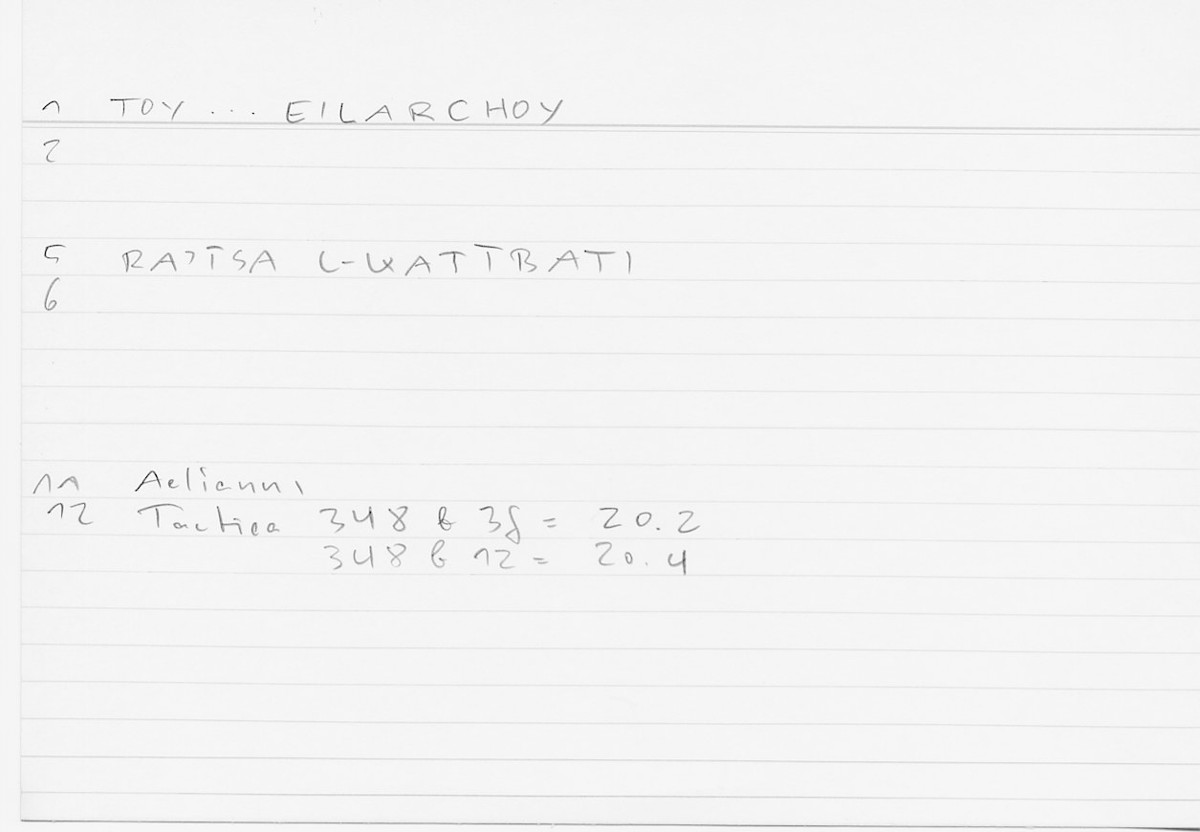 1 TOY ... EILARCHOY
2
5 RAʾĪSA L-KATĪBATI
6
11 Aelianus
12 Tactica 348 b 3f = 20.2
348 b 12 = 20.4